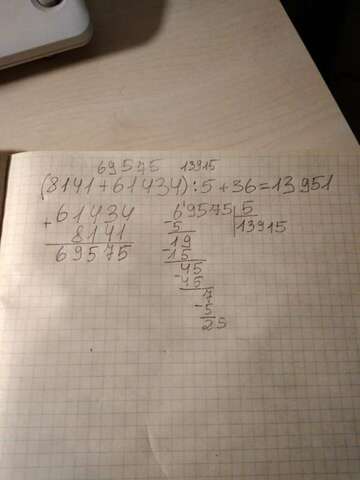 69575 13915
(8141+61434):5+36=13951
61434 69575 5
+ 8141 -5 13915
69575 19
-15
45
-45
7
-5
25